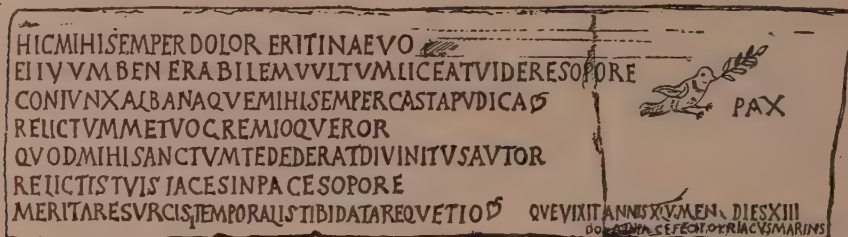 HICMIHISEMPER DOLOR ERITINAEVO
EIIVVMBENERABILEMVVLTVMLICEATVIDERESOPORE
CONIVNXALBANAQVEMIHISEMPERCASTAPVDICA
RELICTVMMETVOGREMIOQVEROR
QVODMIHISANCTVMTEDEDERATDIVINITVSAVTOR
RELICTISTVISIACESINPACESOPORE
MERITARESVRGISTEMPORALISTIBIDATAREQVETIO
QVEVIXITANNIS MEN DIESXIII
CYRIACVSMARINS
PAX